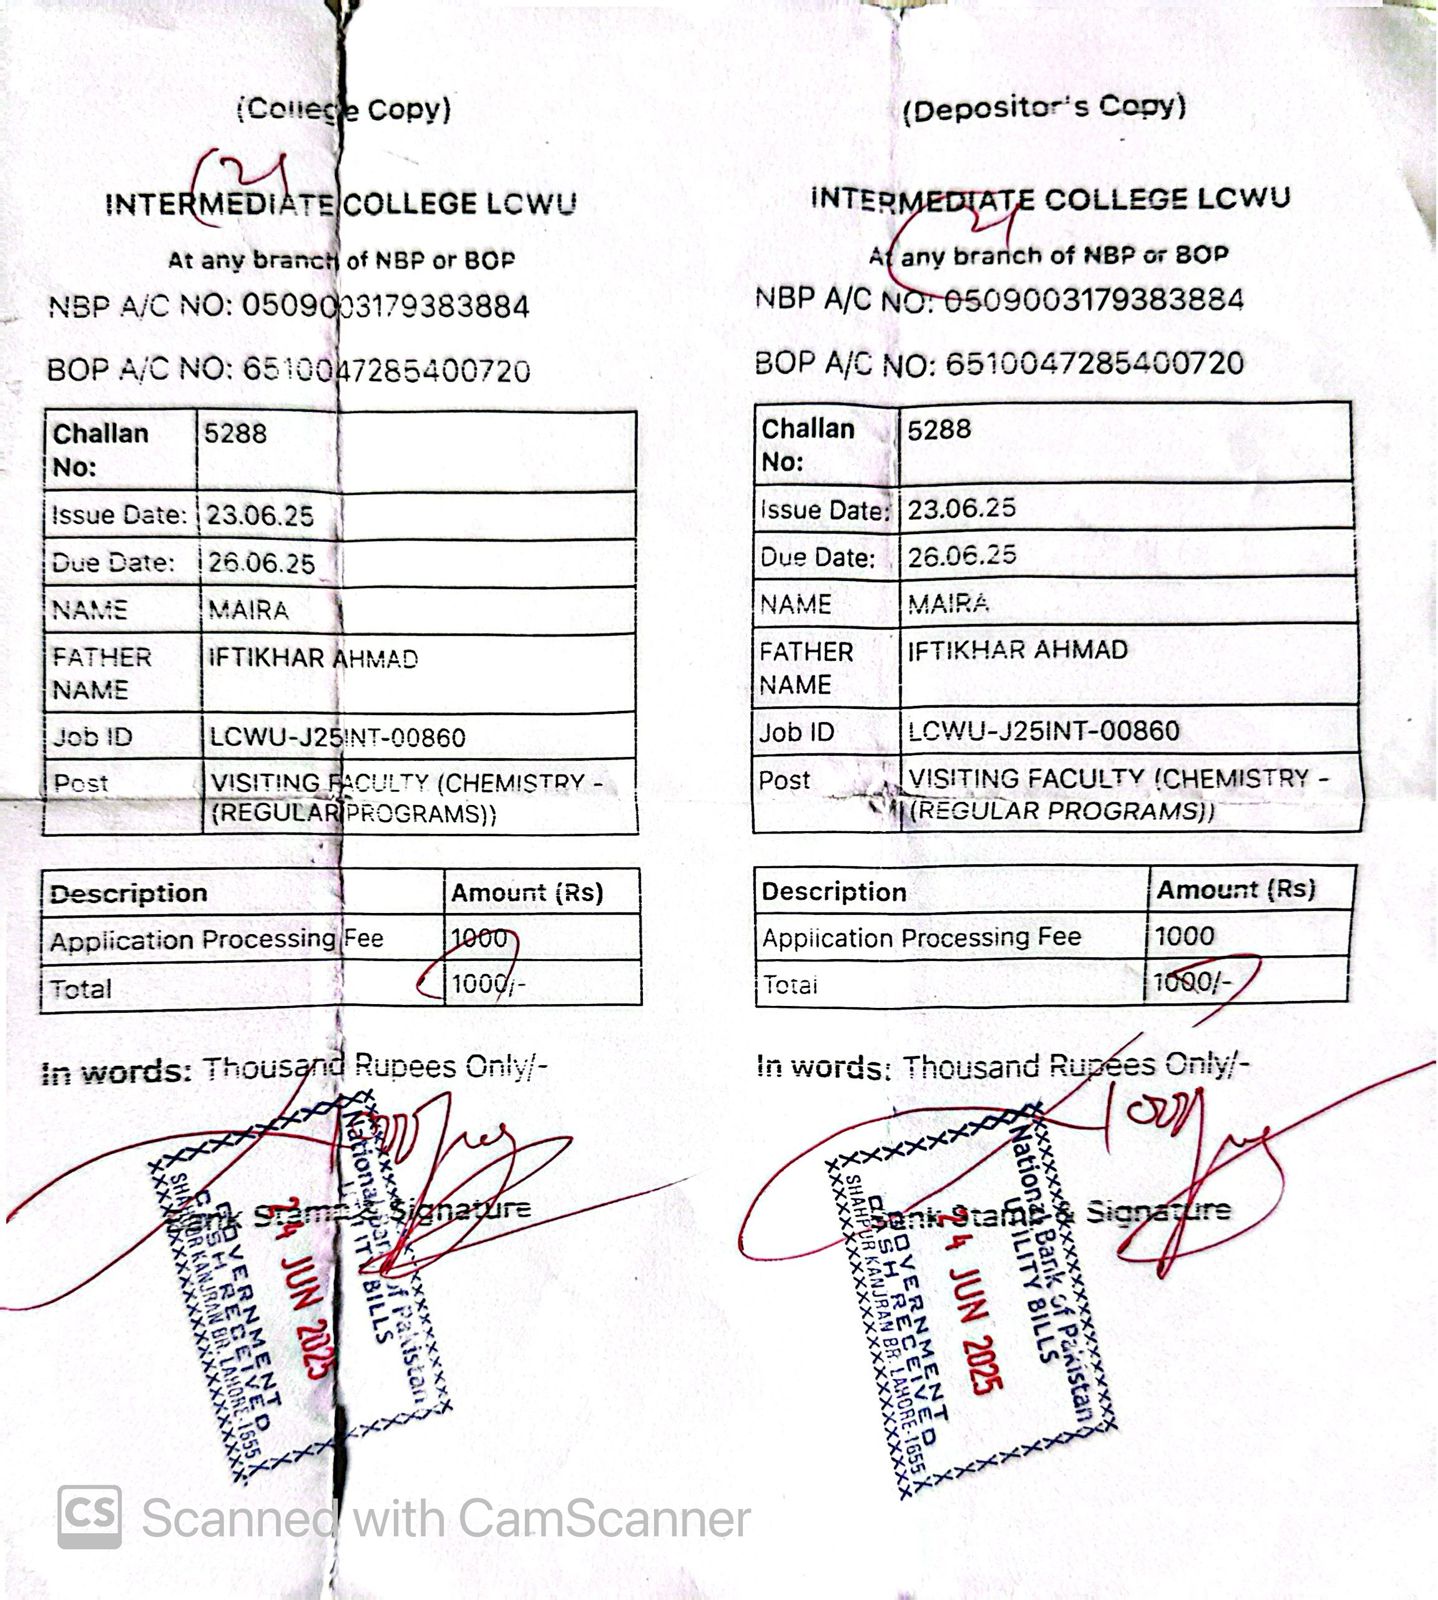 (College Copy)
INTERMEDIATE COLLEGE LCWU
At any branch of NBP or BOP
NBP A/C NO: 0509003179383884
BOP A/C NO: 6510047285400720
Challan No: 5288
Issue Date: 23.06.25
Due Date: 26.06.25
NAME MAIRA
FATHER NAME IFTIKHAR AHMAD
Job ID LCWU-J25INT-00860
Post VISITING FACULTY (CHEMISTRY -
(REGULAR PROGRAMS))
Description Amount (Rs)
Application Processing Fee 1000
Total 1000/-
In words: Thousand Rupees Only/-
Bank Stamp & Signature
National Bank of Pakistan
UTILITY BILLS
24 JUN 2025
GOVERNMENT
CASH RECEIVED
SHAHPUR KANJRAN BR. LAHORE-1655
(Depositor's Copy)
INTERMEDIATE COLLEGE LCWU
At any branch of NBP or BOP
NBP A/C NO: 0509003179383884
BOP A/C NO: 6510047285400720
Challan No: 5288
Issue Date: 23.06.25
Due Date: 26.06.25
NAME MAIRA
FATHER NAME IFTIKHAR AHMAD
Job ID LCWU-J25INT-00860
Post VISITING FACULTY (CHEMISTRY -
(REGULAR PROGRAMS))
Description Amount (Rs)
Application Processing Fee 1000
Total 1000/-
In words: Thousand Rupees Only/-
Bank Stamp & Signature
National Bank of Pakistan
UTILITY BILLS
24 JUN 2025
GOVERNMENT
CASH RECEIVED
SHAHPUR KANJRAN BR. LAHORE-1655
CS Scanned with CamScanner